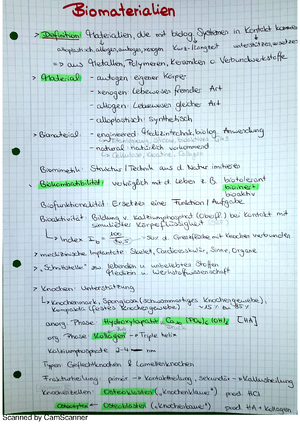 Biomaterialien
> Definition: Materialien, die mit biolog. Systemen in Kontakt kommen
alloplastisch, allogen, autogen, xenogen Kurz-/Langzeit unterstützen, ersetzen
=> aus Metallen, Polymeren, Keramiken o Verbundwerkstoffe
> Material: - autogen eigener Körper
- xenogen Lebewesen fremder Art
- allogen: Lebewesen gleicher Art
- alloplastisch: Synthetisch
> Biomaterial: - engineered: Medizintechnik, biolog. Anwendung
- natural: natürlich vorkommend
↳ Cellulose, Keratine, Kollagen
Biomimetik: Struktur / Technik aus d. Natur imitieren
Biokompatibilität: verträglich mit d. Leben z.B. biotolerant
bioinert
bioaktiv
Biofunktionalität: Ersetzen einer Funktion / Aufgabe
Bioaktivität: Bildung v. Kalziumphosphat (Oberfl.) bei Kontakt mit
simulierter Körperflüssigkeit
↳ Index IB = 100/t0,5 d. Grenzfläche mit Knochen verbunden
> medizinische Implantate: Skelett, Cardiovaskulär, Sinne, Organe
> „Schnittstelle" zw. lebenden u. unbelebten Stoffen
Medizin u. Werkstoffwissenschaft
> Knochen: Unterstützung
↳ Knochenmark, Spongiosa (schwammartiges Knochengewebe),
Kompakta (festes Knochengewebe)
anorg. Phase: Hydroxylapatit, Ca10(PO4)6(OH)2 [HA]
org. Phase: Kollagen → Triple helix
Kalziumphosphate nm
Typen: Geflechtknochen & Lamellenknochen
Frakturheilung: primär → Kontaktheilung, sekundär → Kallusheilung
Knochenzellen: Osteoklasten („Knochenklauer") prod. HCl
Osteozyten ← Osteoblasten („Knochenbauer") prod. HA + Kollagen
Scanned by CamScanner